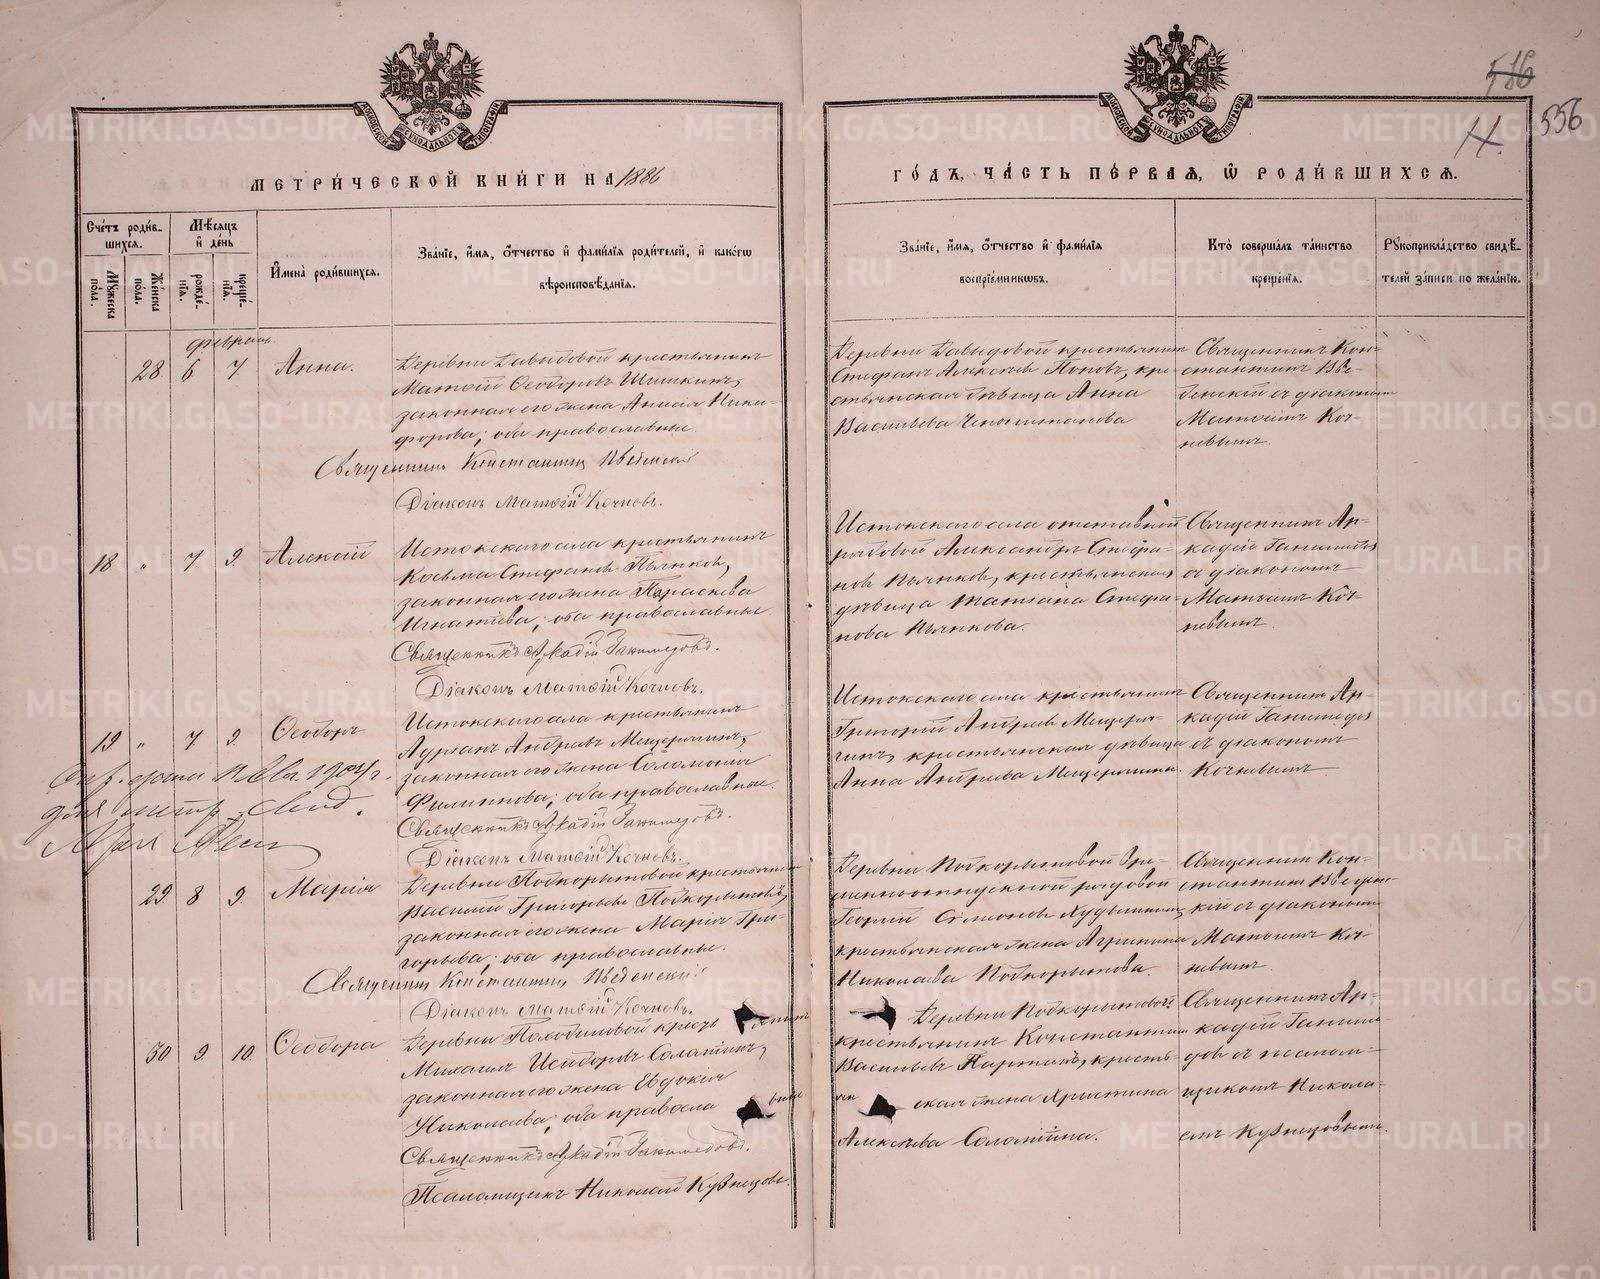 МЕТРИЧЕСКОЙ КНИГИ НА 1886
ГОДЪ, ЧАСТЬ ПЕРВАЯ, Ѿ РОДИВШИХСЯ.
516
556
Счетъ родившихся.
Мужеска пола.
Женска пола.
Мѣсяцъ и день
рожденія.
крещенія.
Имена родившихся.
Званіе, имя, отчество и фамилія родителей, и какого
вѣроисповѣданія.
Званіе, имя, отчество и фамилія
воспріемниковъ.
Кто совершалъ таинство
крещенія.
Рукоприкладство свидѣ-
телей записи по желанію.
Февраль
28 6 7 Анна.
Деревни Давыдовой крестьянинъ
Матѳій Ѳеодоровъ Шишкинъ,
законная его жена Анисія Ники-
форова; оба православные.
Священникъ Константинъ Введенскій
Діаконъ Матѳій Кочневъ.
Деревни Давыдовой крестьянинъ
Стефанъ Алексѣевъ Поповъ, кре-
стьянская дѣвица Анна
Васильева
Священникъ Кон-
стантинъ Вве-
денскій съ діакономъ
Матѳіемъ Коч-
невымъ.
18 „ 7 9. Алексій
Истокскаго села крестьянинъ
Косьма Стефановъ Пьянковъ,
законная его жена Параскева
Игнатіева; оба православные.
Священникъ Аркадій Ганимедовъ.
Діаконъ Матѳій Кочневъ.
Истокскаго села отставной
рядовой Александръ Стефа-
новъ Пьянковъ, крестьянская
дѣвица Татіана Стефа-
нова Пьянкова.
Священникъ Ар-
кадій Ганимедовъ
съ діакономъ
Матѳіемъ Коч-
невымъ.
19 „ 7 9. Ѳеодоръ
Истокскаго села крестьянинъ
Адріанъ Андреевъ Мещерягинъ,
законная его жена Соломонія
Филиппова; оба православные.
Священникъ Аркадій Ганимедовъ.
Діаконъ Матѳій Кочневъ.
Истокскаго села крестьянинъ
Григорій Андреевъ Мещеря-
гинъ, крестьянская дѣвица
Анна Андреева Мещерягина.
Священникъ Ар-
кадій Ганимедовъ
съ діакономъ
Кочневымъ
1904 г.
метр. свид.
29. 8 9. Марія
Деревни Подкорытовой крестьянинъ
Василій Григорьевъ Подкорытовъ,
законная его жена Марія Гри-
горьева; оба православные.
Священникъ Константинъ Введенскій
Діаконъ Матѳій Кочневъ.
Деревни Подкорытовой вре-
менноотпускной рядовой
Георгій Симеоновъ
крестьянская жена Агрипина
Николаева Подкорытова.
Священникъ Кон-
стантинъ Введен-
скій съ діакономъ
Матѳіемъ Коч-
невымъ
30 9 10. Ѳеодора
Деревни крестьянинъ
Михаилъ Исидоровъ
законная его жена Евдокія
Николаева; оба правосла вные
Священникъ Аркадій Ганимедовъ.
Псаломщикъ Николай Кузнецовъ.
Деревни Подкорытовой
крестьянинъ Константинъ
Васильевъ кресть-
ян ская жена Христина
Алексѣева
Священникъ Ар-
кадій Ганиме-
довъ съ псалом-
щикомъ Никола-
емъ Кузнецовымъ.